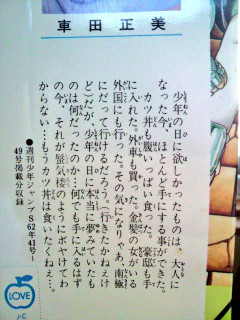 車田正美
少年の日に欲しかったものは、大人に
なった今、ほとんど手にする事ができた。
カツ丼も腹いっぱい食った。豪邸も手
に入れた。外車も買った。金髪の女がいる
外国にも行った。その気になりゃあ、南極
にだって行けるだろう。(行きたかねえけ
ど)だが、少年の日に本当に夢みていたも
のは何だったのか…何でも手に入るはず
の今、それが蜃気楼のようにボヤけてわ
からない…もうカツ丼も食いたくねえ…。
●週刊少年ジャンプS62年41号〜
49号掲載分収録
LOVE
J・C